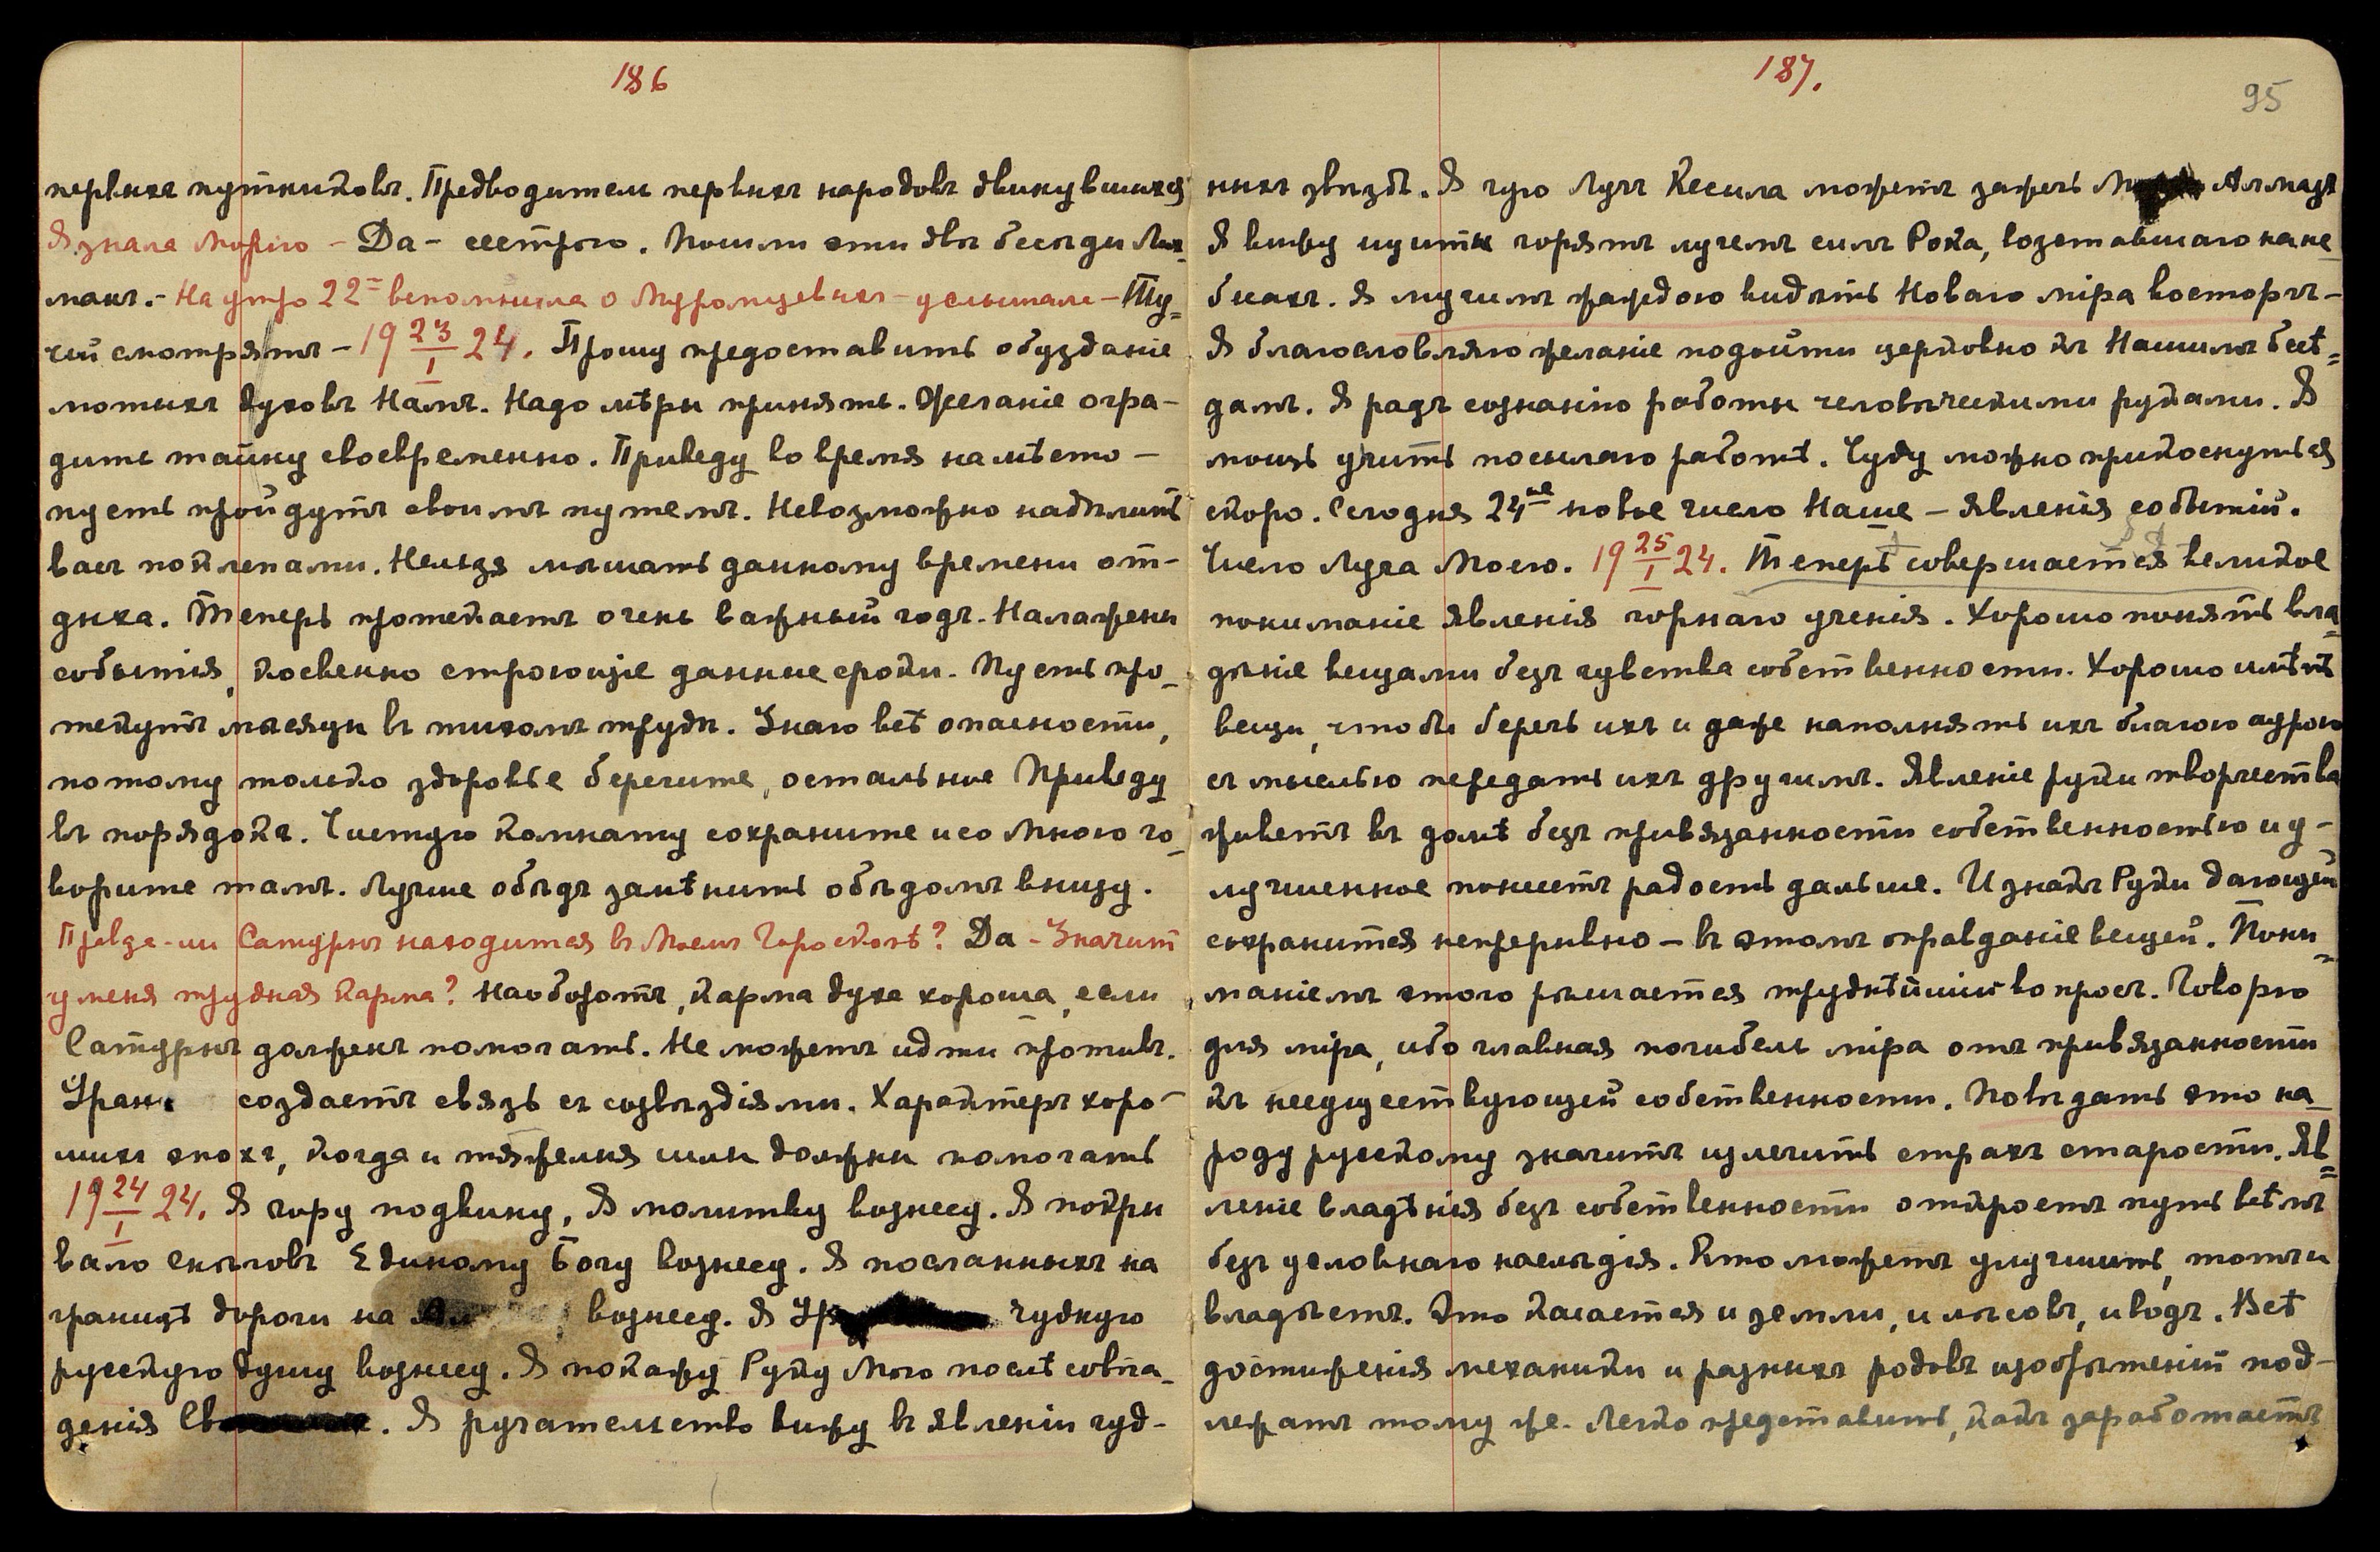 186
первыхъ путниковъ. Предводители первыхъ народовъ двинувшихся
Я знала Морію - Да - сестрою. Пошли эти двѣ бесѣды Ла
махъ. - На утро 22 вспомнила о Муромцевыхъ - услышала - Ту=
чи смотрятъ - 19 23/I 24. Прошу предоставить обузданіе
мотыхъ духовъ Намъ. Надо мѣры принять. Желаніе огра-
дить тайну своевременно. Приведу во время на мѣсто -
пусть пройдутъ своимъ путемъ. Невозможно надѣлить
васъ поклепами. Нельзя мѣшать данному времени от-
дыха. Теперь протекаетъ очень важный годъ. Налажены
событія, косвенно строющіе данные сроки. Пусть про-
текутъ мѣсяцы въ тихомъ трудѣ. Знаю всѣ опасности,
потому только здоровье берегите, остальное Приведу
въ порядокъ. Чистую комнату сохраните и со Мною го-
ворите тамъ. Лучше обѣдъ замѣнить обѣдомъ внизу.
Правда-ли Сатурнъ находится въ Моемъ Гороскопѣ? Да - Значит
у меня трудная карма? Наоборотъ, карма духа хороша, если
Сатурнъ долженъ помогать. Не можетъ идти противъ.
Уран создаетъ связь съ созвѣздіями. Характеръ хоро-
шихъ эпохъ, когда и тяжелыя силы должны помогать
19 24/I 24. Я гору подвину, Я молитву вознесу. Я покры
вало Сныговъ Единому Богу вознесу. Я посланныхъ на
границѣ дороги на вознесу. Я чудную
русскую душу вознесу. Я покажу Руку Мою послѣ совпа-
денія. Я ручательство вижу въ явленіи чуд-
187.
95
ныхъ звѣздъ. Я чую Лучъ Кесила можетъ зажечь Алмазъ
Я вижу щиты горятъ лучемъ силъ Рока, возставшаго на не
бесахъ. Я мучимъ жаждою видѣть Новаго міра восторгъ -
Я благословляю желаніе подойти церковно къ Нашимъ бесѣ=
дамъ. Я радъ сознанію работы человѣческими руками. Я
мощь учить посылаю работѣ. Чуду можно прикоснуться
скоро. Сегодня 24ое новое число Наше - явленія событій.
Число Луча Моего. 19 25/I 24. Теперь совершается великое
пониманіе явленія горнаго ученія. Хорошо понять вла=
дѣніе вещами безъ чувства собственности. Хорошо имѣть
вещи, чтобы беречь ихъ и даже наполнять ихъ благою аурою
съ мыслью передать ихъ другимъ. Явленіе руки творчества
живетъ въ домѣ безъ привязанности собственностью и у-
лучшенное понесетъ радость дальше. И знакъ Руки дающей
сохранится непрерывно - въ этомъ оправданіе вещей. Пони=
маніемъ этого рѣшается труднѣйшій вопросъ. Говорю
для міра, ибо главная погибель міра отъ привязанности
къ несуществующей собственности. Повѣдать это на
роду русскому значитъ излечить страхъ старости. Яв=
леніе владѣнія безъ собственности откроетъ путь всѣмъ
безъ условнаго наслѣдія. Кто можетъ улучшить, тотъ и
владѣетъ. Это касается и земли, и лѣсовъ, и водъ. Всѣ
достиженія механики и разныхъ родовъ изобрѣтеній под-
лежатъ тому же. Легко представить, какъ заработаетъ